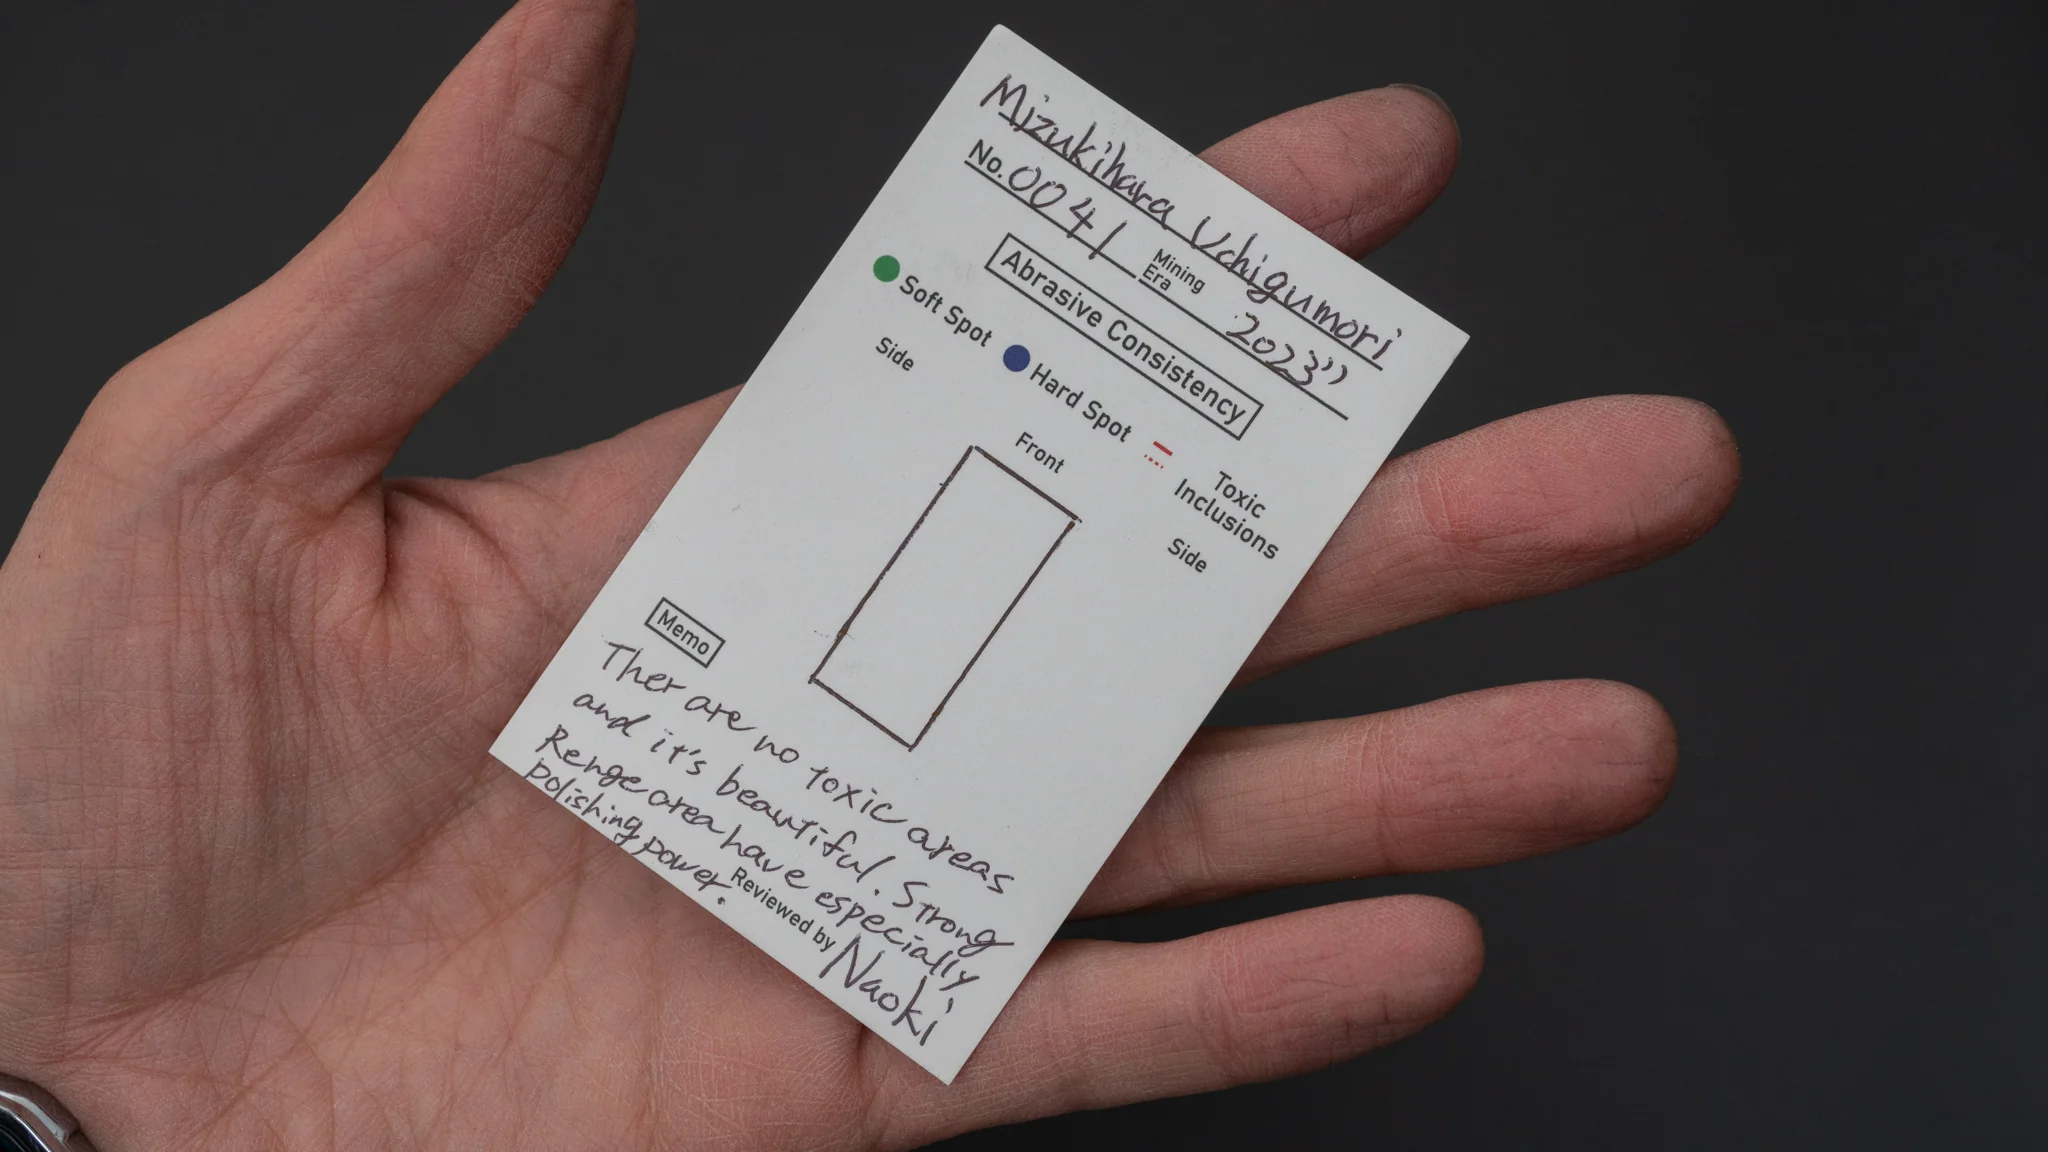 Mizukihara Uchigumori
No. 0041 Mining Era 2023"
Abrasive Consistency
Soft Spot Hard Spot Toxic Inclusions
Side Front Side
Memo
Ther are no toxic areas
and it's beautiful. Strong
Renge area have especially
polishing power.
Reviewed by Naoki